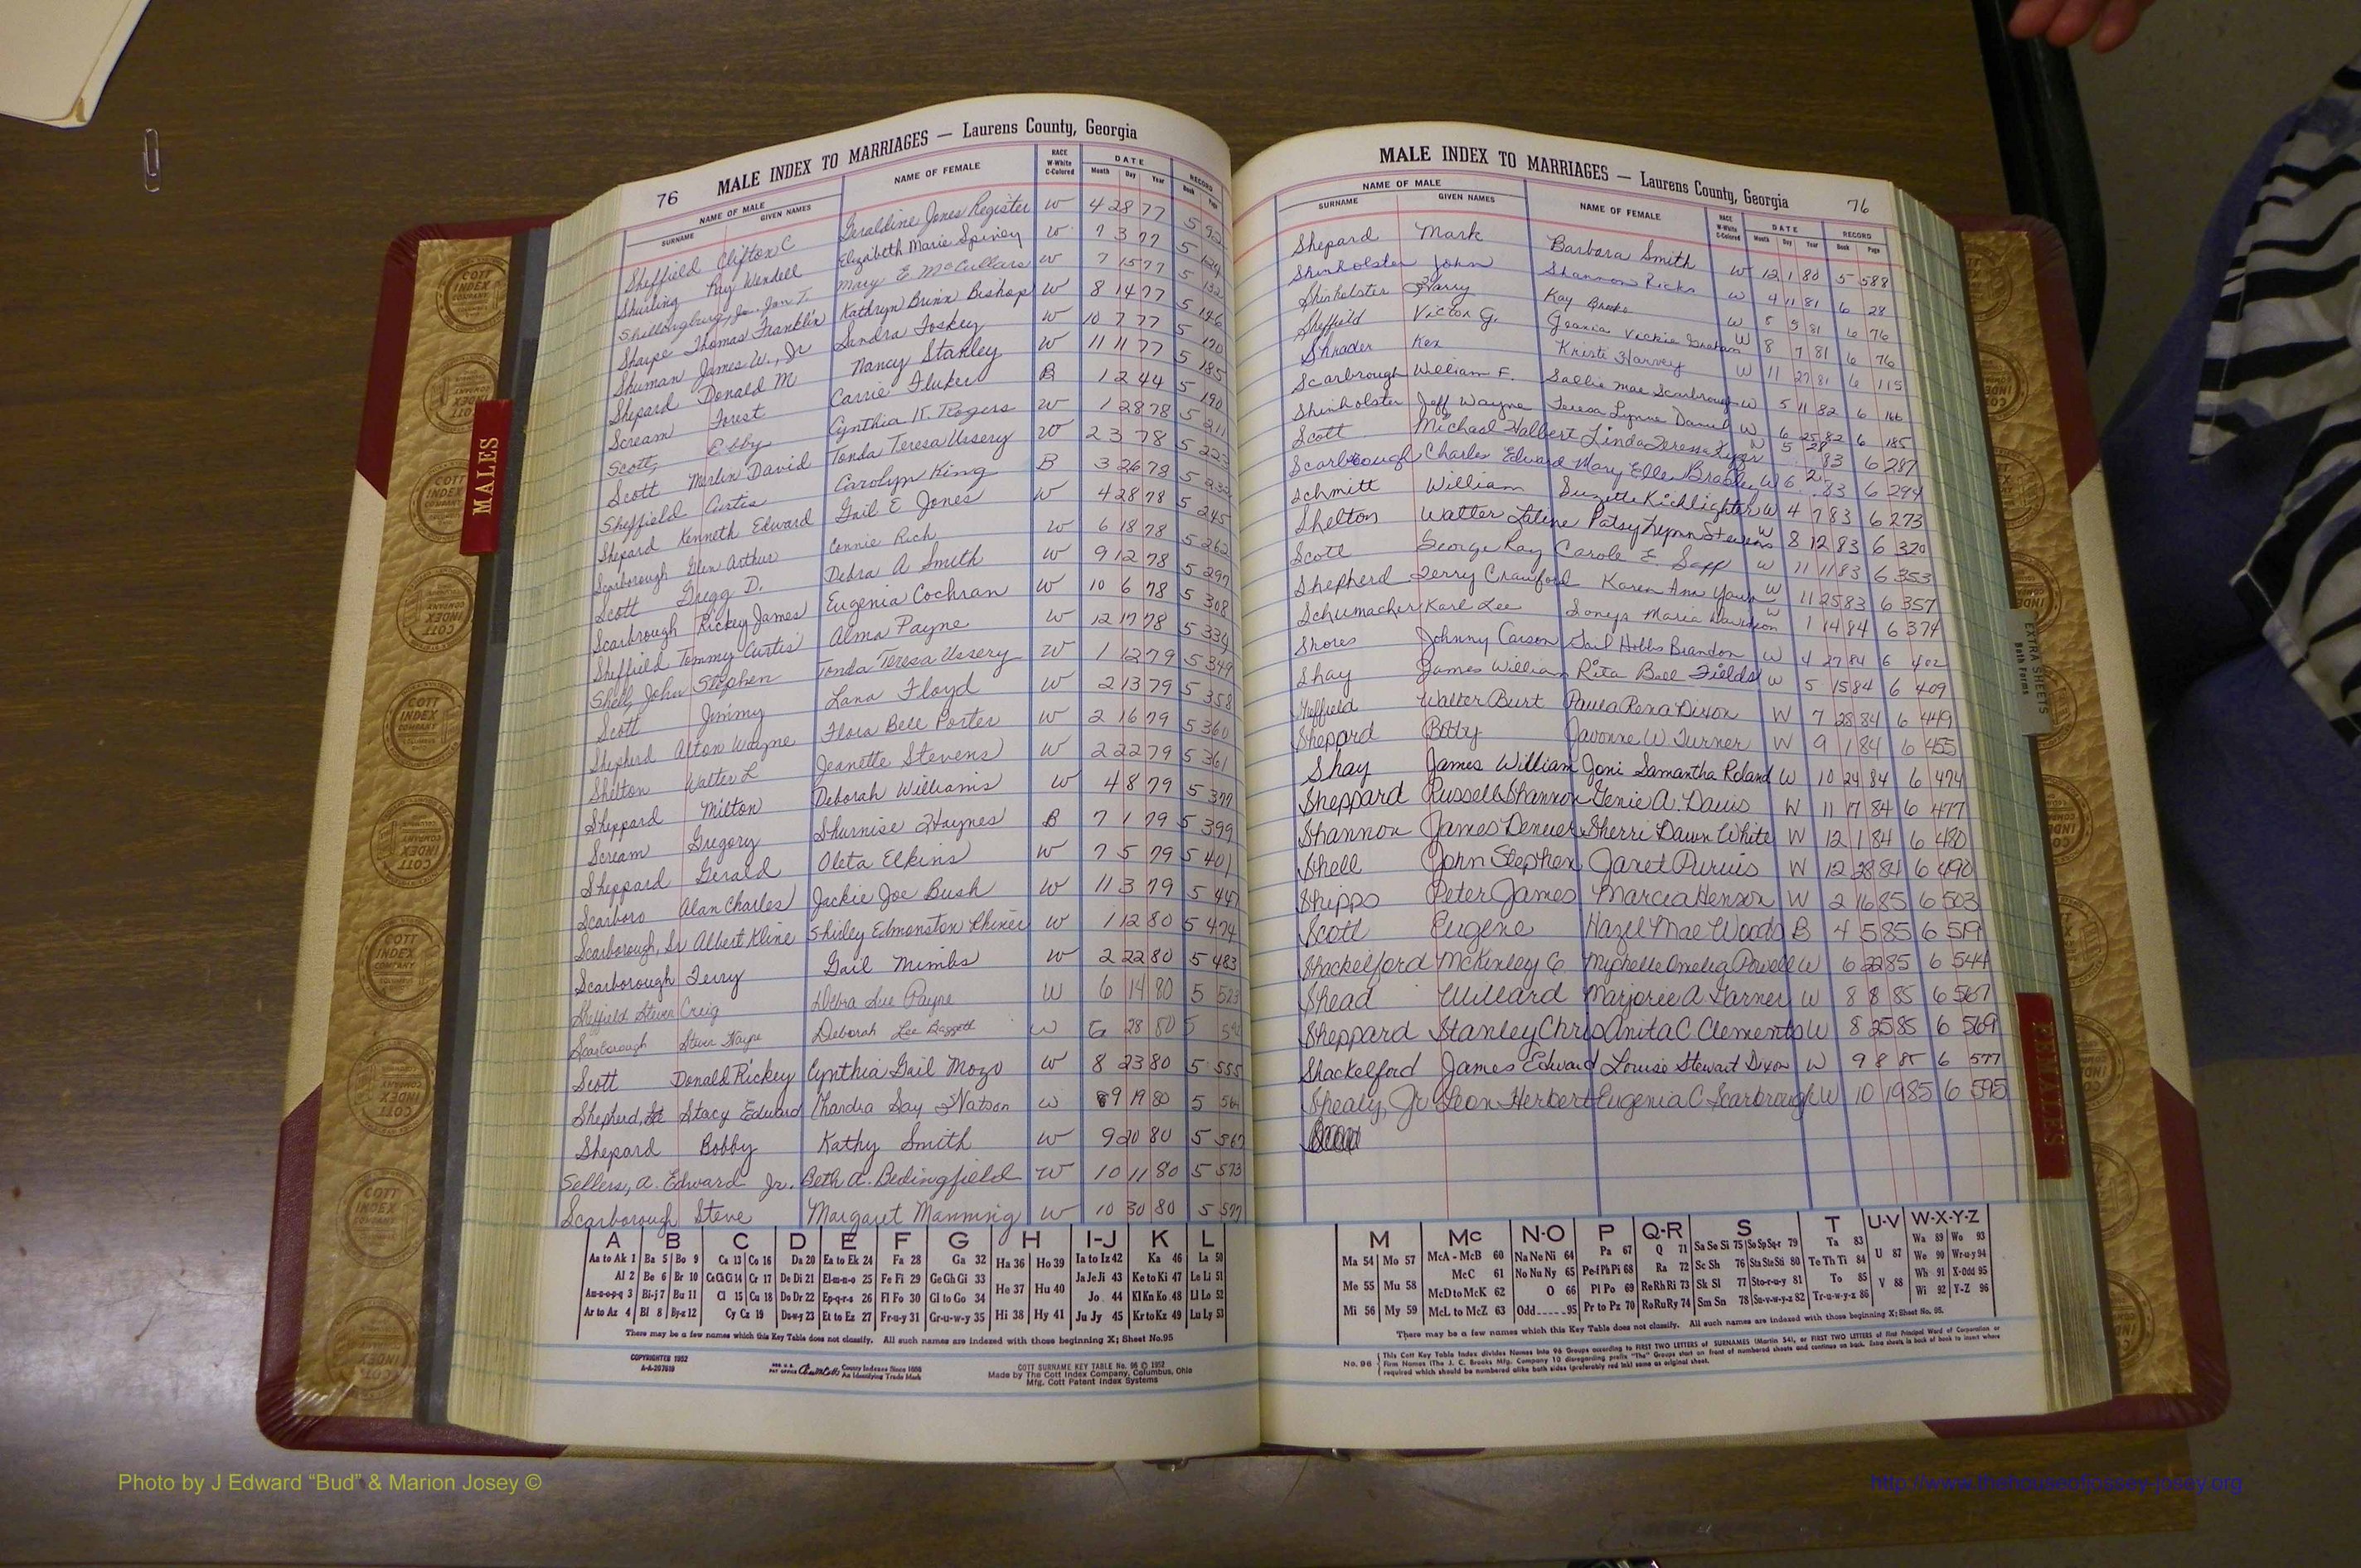 76 MALE INDEX TO MARRIAGES — Laurens County, Georgia
NAME OF MALE NAME OF FEMALE RACE W-White C-Colored DATE RECORD
SURNAME GIVEN NAMES Month Day Year Book Page
Sheffield Clifton C Geraldine Jones Register W 4 28 77 5 92
Shurling Ray Wendell Elizabeth Marie Spivey W 7 3 77 5 124
Jon T. Mary E. McCullars W 7 15 77 5 132
Sharpe Thomas Franklin Kathryn Brinn Bishop W 8 14 77 5 146
Shuman James W., Jr Sandra Foskey W 10 7 77 5 170
Shepard Donald M Nancy Stanley W 11 11 77 5 185
Scream Forest Carrie Fluker B 1 2 44 5 190
Scott, Ebby Cynthia K. Rogers W 1 28 78 5 211
Scott Merlin David Tonda Teresa Ussery W 2 3 78 5 223
Sheffield Curtis Carolyn King B 3 26 78 5 232
Shepard Kenneth Edward Gail E Jones W 4 28 78 5 245
Scarborough Glen Arthur Connie Rich W 6 18 78 5 262
Scott Gregg D. Debra A Smith W 9 12 78 5 297
Scarbrough Rickey James Eugenia Cochran W 10 6 78 5 308
Sheffield Tommy Curtis Alma Payne W 12 17 78 5 334
Shell, John Stephen Tonda Teresa Ussery W 1 12 79 5 349
Scott Jimmy Lana Floyd W 2 13 79 5 358
Shepherd Alton Wayne Flora Bell Porter W 2 16 79 5 360
Shelton Walter L Jeanette Stevens W 2 22 79 5 361
Sheppard Milton Deborah Williams W 4 8 79 5 377
Scream Gregory Shurnise Haynes B 7 1 79 5 399
Sheppard Gerald Oleta Elkins W 7 5 79 5 401
Scarboro Alan Charles Jackie Joe Bush W 11 3 79 5 447
Scarborough, Sr Albert Kline Shirley Edmonston W 1 12 80 5 474
Scarborough Terry Gail Mimbs W 2 22 80 5 483
Sheffield Steven Craig Debra Sue Payne W 6 14 80 5 523
Scarborough Steve Wayne Deborah Lee Baggett W 6 28 80 5
Scott Donald Rickey Cynthia Gail Mozo W 8 23 80 5 555
Shepherd, Stacy Edward Chandra Gay Watson W 9 19 80 5 564
Shepard Bobby Kathy Smith W 9 20 80 5 567
Sellers, A. Edward Jr. Beth A. Bedingfield W 10 11 80 5 573
Scarborough Steve Margaret Manning W 10 30 80 5 577
A B C D E F G H I-J K L
Aa to Ak 1 Ba 5 Bo 9 Ca 13 Co 16 Da 20 Ea to Ek 24 Fa 28 Ga 32 Ha 36 Ho 39 Ia to Iz 42 Ka 46 La 50
Al 2 Be 6 Br 10 Ce Ch Ci 14 Cr 17 De Di 21 El-m-n-o 25 Fe Fi 29 Ge Gh Gi 33 He 37 Hu 40 Ja Je Ji 43 Ke to Ki 47 Le Li 51
Am-n-o-p-q 3 Bi-j 7 Bu 11 Cl 15 Cu 18 Do Dr 22 Ep-q-r-s 26 Fl Fo 30 Gl to Go 34 Jo 44 Kl Kn Ko 48 Ll Lo 52
Ar to Az 4 Bl 8 By-z 12 Cy Cz 19 Du-w-y 23 Et to Ez 27 Fr-u-y 31 Gr-u-w-y 35 Hi 38 Hy 41 Ju Jy 45 Kr to Kz 49 Lu Ly 53
There may be a few names which this Key Table does not classify. All such names are indexed with those beginning X; Sheet No.95
COPYRIGHTED 1952
A-A-207619
County Indexes Since 1888
An Identifying Trade Mark
COTT SURNAME KEY TABLE No. 96 © 1952
Made by The Cott Index Company, Columbus, Ohio
Mfg. Cott Patent Index Systems
MALE INDEX TO MARRIAGES — Laurens County, Georgia 76
NAME OF MALE NAME OF FEMALE RACE W-White C-Colored DATE RECORD
SURNAME GIVEN NAMES Month Day Year Book Page
Shepard Mark Barbara Smith W 12 1 80 5 588
Shinholster John Shannon Ricks W 4 11 81 6 28
Shinholster Harry Kay Brooks W 8 5 81 6 76
Sheffield Victor G. Vickie Graham W 8 7 81 6 76
Shrader Rex Kristi Harvey W 11 27 81 6 115
Scarbrough William F. Sallie Mae Scarbrough W 5 11 82 6 166
Shinholster Jeff Wayne Teresa Lynne Daniel W 6 25 82 6 185
Scott Michael Halbert Linda Teressa W 5 28 83 6 287
Scarborough Charles Edward Mary Ellen W 6 2 83 6 294
Schmitt William Suzette Kicklighter W 4 7 83 6 273
Shelton Walter Patsy Lynn Stevens W 8 12 83 6 320
Scott George Ray Carole E. Sapp W 11 1 83 6 353
Shepherd Terry Crawford Karen Ann Yawn W 11 25 83 6 357
Schumacher Karl Lee Sonya Maria Davidson W 1 14 84 6 374
Shores Johnny Carson Gail Hobbs Brandon W 4 27 84 6 402
Shay James William Rita Bell Fields W 5 15 84 6 409
Sheffield Walter Burt Paula Rena Dixon W 7 28 84 6 449
Shepard Bobby Javonne W Turner W 9 1 84 6 455
Shay James William Joni Samantha Roland W 10 24 84 6 474
Sheppard Russell Shannon Genie A. Davis W 11 17 84 6 477
Shannon James Denver Sherri Dawn White W 12 1 84 6 480
Shell John Stephen Janet Purvis W 12 28 84 6 490
Shipps Peter James Marcia Henson W 2 16 85 6 503
Scott Eugene Hazel Mae Woods B 4 5 85 6 519
Shackelford McKinley C. Michelle Amelia Powell W 6 22 85 6 544
Shead Willard Marjorie A Garner W 8 8 85 6 567
Sheppard Stanley Chris Anita C Clements W 8 25 85 6 569
Shackelford James Edward Louise Stewart Dixon W 9 8 85 6 577
Shealy, Jr Leon Herbert Eugenia C Scarbrough W 10 19 85 6 595
M Mc N-O P Q-R S T U-V W-X-Y-Z
Ma 54 Mo 57 McA - McB 60 Na Ne Ni 64 Pa 67 Q 71 Sa Se Si 75 So Sp Sq-r 79 Ta 83 U 87 Wa 89 Wo 93
Me 55 Mu 58 McC 61 No Nu Ny 65 Pe-f Ph Pi 68 Ra 72 Sc Sh 76 Sta Ste Sti 80 Te Th Ti 84 We 90 Wr-u-y 94
McD to McK 62 O 66 Pl Po 69 Re Rh Ri 73 Sk Sl 77 Sto-r-u-y 81 To 85 V 88 Wh 91 X-Odd 95
Mi 56 My 59 McL to McZ 63 Odd 95 Pr to Pz 70 Ro Ru Ry 74 Sm Sn 78 Su-v-w-y-z 82 Tr-u-w-y-z 86 Wi 92 Y-Z 96
There may be a few names which this Key Table does not classify. All such names are indexed with those beginning X; Sheet No. 95.
No. 96 This Cott Key Table Index divides Names into 96 Groups according to FIRST TWO LETTERS of SURNAMES (Martin 54), or FIRST TWO LETTERS of First Principal Word of Corporation or
Firm Names (The J. C. Brooks Mfg. Company 10 disregarding prefix "The") Groups start on front of numbered sheets and continue on back. Extra sheets in back of book to insert where
required which should be numbered alike both sides (preferably red ink) same as original sheet.
MALES
EXTRA SHEETS
Both Forms
COTT
INDEX
COMPANY
Photo by J Edward “Bud” & Marion Josey ©
http://www.thehouseofjossey-josey.org